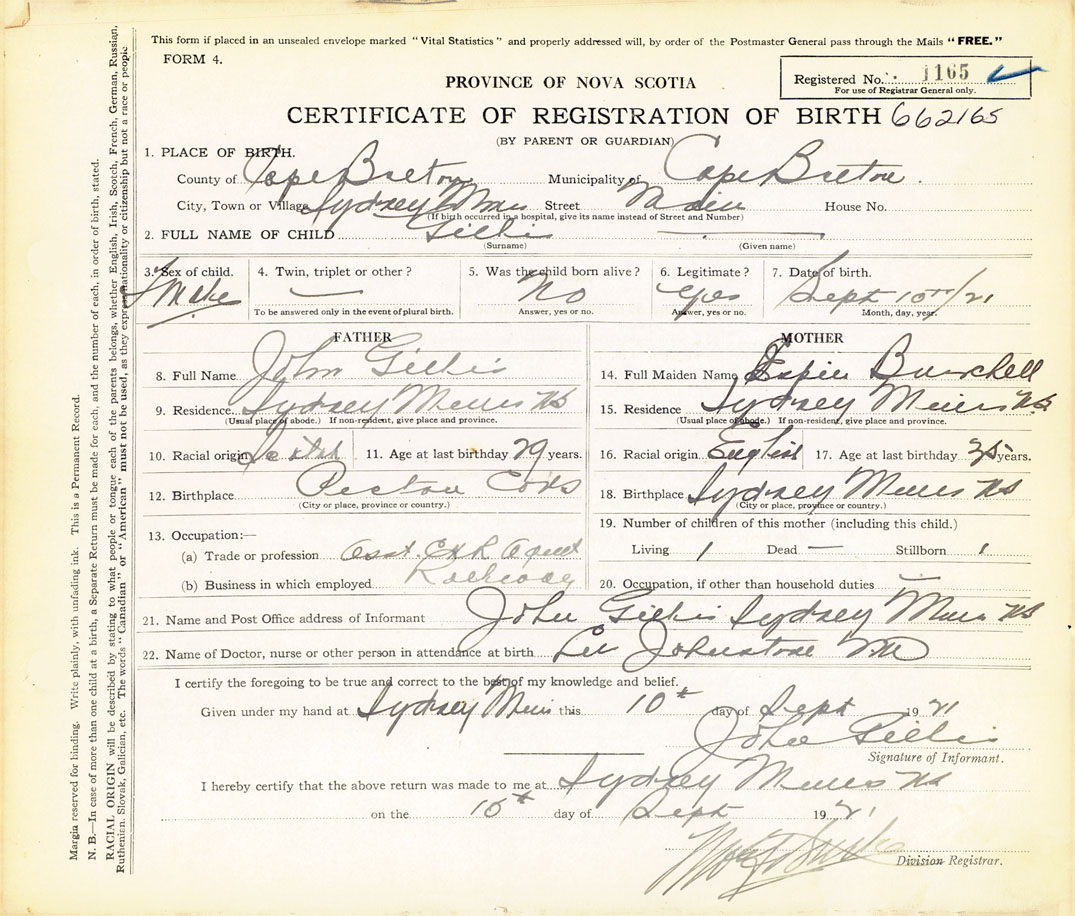 This form if placed in an unsealed envelope marked "Vital Statistics" and properly addressed will, by order of the Postmaster General pass through the Mails "FREE."
FORM 4.
Registered No. 1165
For use of Registrar General only.
PROVINCE OF NOVA SCOTIA
CERTIFICATE OF REGISTRATION OF BIRTH 662165
(BY PARENT OR GUARDIAN)
1. PLACE OF BIRTH.
County of Cape Breton Municipality of Cape Breton
City, Town or Village Sydney Mines Street Main House No.
(If birth occurred in a hospital, give its name instead of Street and Number)
2. FULL NAME OF CHILD Gillis —
(Surname) (Given name)
3. Sex of child. 4. Twin, triplet or other? 5. Was the child born alive? 6. Legitimate? 7. Date of birth.
Male — No Yes Sept 10th/21
To be answered only in the event of plural birth. Answer, yes or no. Answer, yes or no. Month, day, year.
FATHER
8. Full Name John Gillis
9. Residence Sydney Mines NS
(Usual place of abode.) If non-resident, give place and province.
10. Racial origin 11. Age at last birthday 29 years.
12. Birthplace Pictou
(City or place, province or country.)
13. Occupation:—
(a) Trade or profession Asst. Agent
(b) Business in which employed Railway
MOTHER
14. Full Maiden Name Burchell
15. Residence Sydney Mines N.S
(Usual place of abode.) If non-resident, give place and province.
16. Racial origin English 17. Age at last birthday years.
18. Birthplace Sydney Mines NS
(City or place, province or country.)
19. Number of children of this mother (including this child.)
Living 1 Dead — Stillborn 1
20. Occupation, if other than household duties —
21. Name and Post Office address of Informant John Gillis Sydney Mines NS
22. Name of Doctor, nurse or other person in attendance at birth Johnstone MD
I certify the foregoing to be true and correct to the best of my knowledge and belief.
Given under my hand at Sydney Mines this 10th day of Sept 1921
John Gillis
Signature of Informant.
I hereby certify that the above return was made to me at Sydney Mines NS
on the 10th day of Sept 1921
Division Registrar.
Margin reserved for binding. Write plainly, with unfading ink. This is a Permanent Record.
N. B.—In case of more than one child at a birth, a Separate Return must be made for each, and the number of each, in order of birth, stated.
RACIAL ORIGIN will be described by stating to what people or tongue each of the parents belongs, whether English, Irish, Scotch, French, German, Russian,
Ruthenian, Slovak, Galician, etc. The words "Canadian" or "American" must not be used, as they express nationality or citizenship but not a race or people